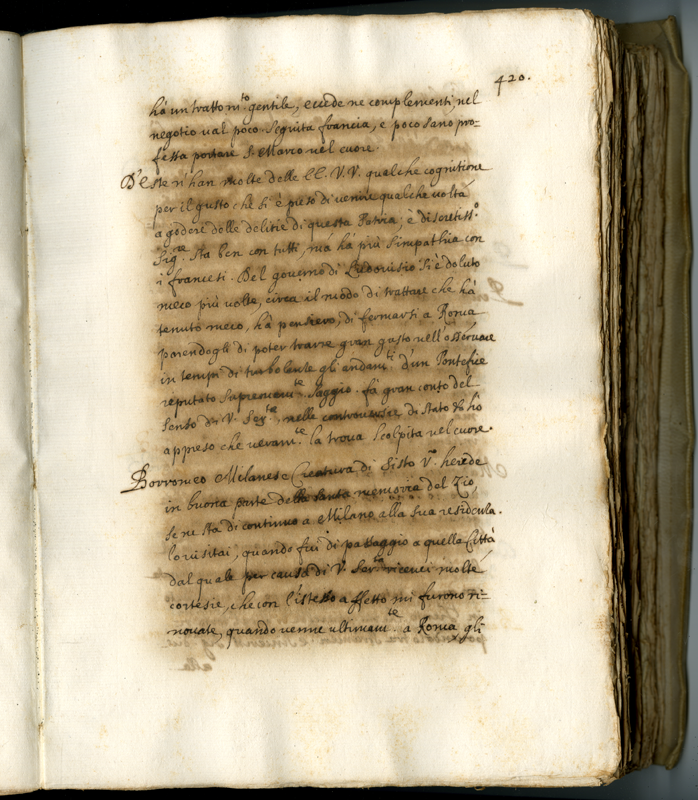 420.
hà un tratto m.to gentile, eccede ne complementi nel
negotio val poco. Seguita francia, e poco sano pro-
fessa portare S. Marco nel cuore.
D'Este n'han molte delle EE. VV. qualche cognitione
per il gusto che si è preso di venire qualche volta
a godere delle delitie di questa Patria, è discretiss.o
Sig.re stà ben con tutti, mà hà più simpathia con
i francesi. Del governo di Ludovisio si è doluto
meco più volte, circa il modo di trattare che hà
tenuto meco, hà pensiero, di fermarsi a Roma
parendogli di poter trarre gran gusto nell'osservare
in tempi di turbolente gli andam.ti d'un Pontefice
reputato supremam.te saggio. fà gran conto del
senso di V. Ser.tà, nelle controversie di stato hò
appreso che veram.te la trova scolpita nel cuore.
Borromeo Milanese Creatura di Sisto V.o herede
in buona parte della santa memoria del Zio,
se ne stà di continuo a Milano alla sua residenza.
lo visitai, quando fui di passaggio a quella Città
dal quale per causa di V. Ser.tà ricevei molte
cortesie, che con l'istesso affetto mi furono ri-
novate, quando venne ultimam.te a Roma gli